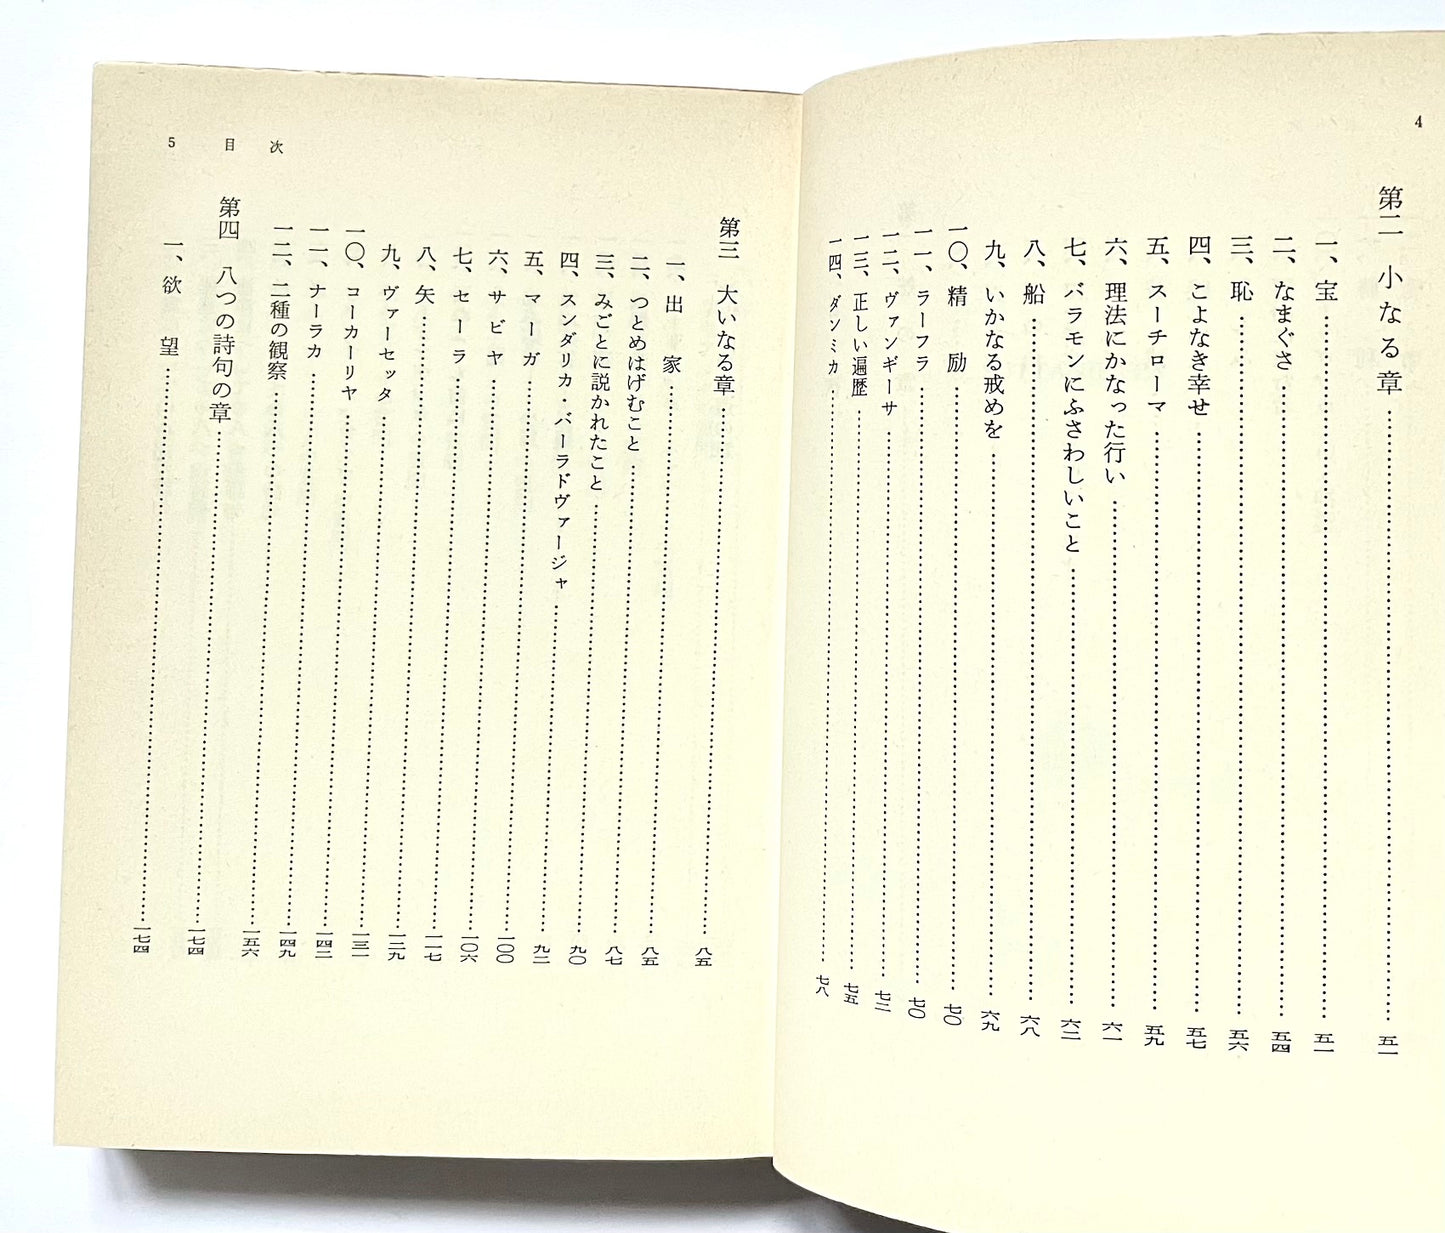 4
第二 小なる章……五一
一、宝……五一
二、なまぐさ……五四
三、恥……五六
四、こよなき幸せ……五七
五、スーチローマ……五九
六、理法にかなった行い……六一
七、バラモンにふさわしいこと……六二
八、船……六八
九、いかなる戒めを……六九
一〇、精励……七〇
一一、ラーフラ……七〇
一二、ヴァンギーサ……七二
一三、正しい遍歴……七五
一四、ダンミカ……七八
5 目次
第三 大いなる章……八五
一、出家……八五
二、つとめはげむこと……八五
三、みごとに説かれたこと……八七
四、スンダリカ・バーラドヴァージャ……九〇
五、マーガ……九二
六、サビヤ……一〇〇
七、セーラ……一〇六
八、矢……一一七
九、ヴァーセッタ……一二九
一〇、コーカーリヤ……一三一
一一、ナーラカ……一四二
一二、二種の観察……一四九
一五六
第四 八つの詩句の章……一七四
一、欲望……一七四